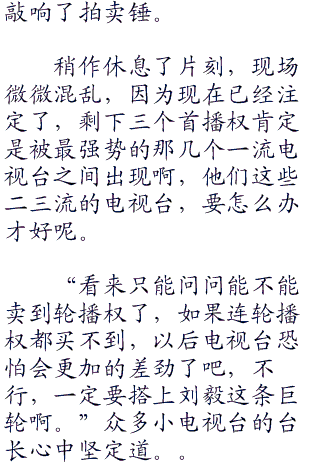 敲响了拍卖锤。
稍作休息了片刻，现场
微微混乱，因为现在已经注
定了，剩下三个首播权肯定
是被最强势的那几个一流电
视台之间出现啊，他们这些
二三流的电视台，要怎么办
才好呢。
“看来只能问问能不能
卖到轮播权了，如果连轮播
权都买不到，以后电视台恐
怕会更加的差劲了吧，不
行，一定要搭上刘毅这条巨
轮啊。”众多小电视台的台
长心中坚定道。。